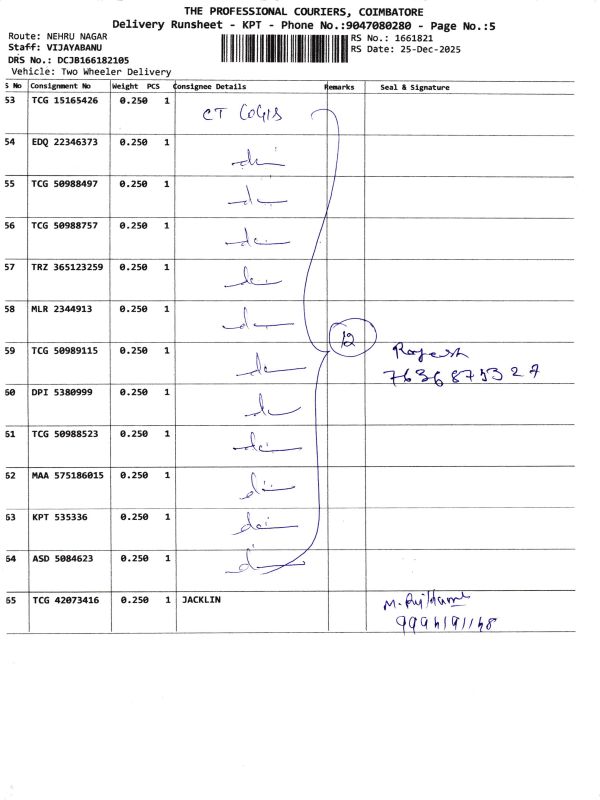 THE PROFESSIONAL COURIERS, COIMBATORE
Delivery Runsheet - KPT - Phone No.:9047080280 - Page No.:5
Route: NEHRU NAGAR
Staff: VIJAYABANU
DRS No.: DCJB166182105
Vehicle: Two Wheeler Delivery
RS No.: 1661821
RS Date: 25-Dec-2025
S No Consignment No Weight PCS Consignee Details Remarks Seal & Signature
53 TCG 15165426 0.250 1 CT
54 EDQ 22346373 0.250 1
55 TCG 50988497 0.250 1
56 TCG 50988757 0.250 1
57 TRZ 365123259 0.250 1
58 MLR 2344913 0.250 1
12
59 TCG 50989115 0.250 1 Rajesh
7636875327
60 DPI 5380999 0.250 1
61 TCG 50988523 0.250 1
62 MAA 575186015 0.250 1
63 KPT 535336 0.250 1
64 ASD 5084623 0.250 1
65 TCG 42073416 0.250 1 JACKLIN